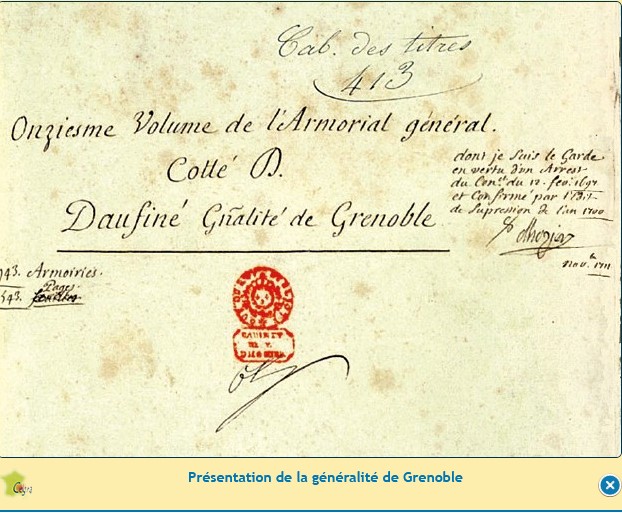 Cab. des titres
413
Onziesme Volume de l'Armorial général.
Cotté D.
Daufiné Gñalité de Grenoble
dont je suis le Garde
en vertu d'un Arrest
du Con.el du 12. fev. 1697
et Confirmé par
de Supression de l'an 1700
d'hozier
943. Armoiries.
Pages
543. feuilles
CABINET
Présentation de la généralité de Grenoble